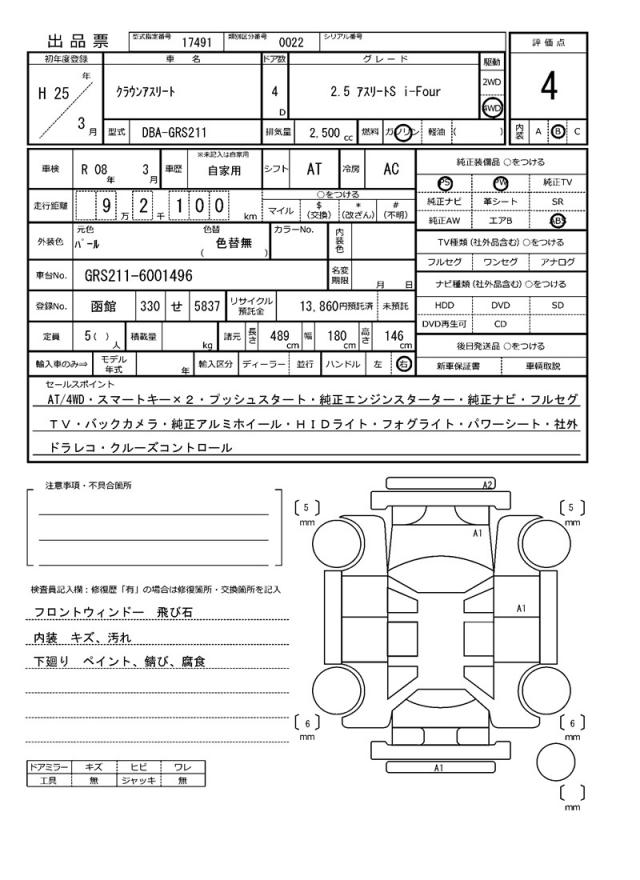 出品票 型式指定番号 17491 類別区分番号 0022 シリアル番号
評価点
4
初年度登録 車名 ドア数 グレード 駆動
H 25 年 3 月 クラウンアスリート 4 D 2.5 アスリートS i-Four 2WD 4WD
型式 DBA-GRS211 排気量 2,500 cc 燃料 ガソリン 軽油 ( )
内装 A B C
車検 R 08 年 3 月 車歴 ※未記入は自家用 自家用 シフト AT 冷房 AC
走行距離 9 万 2 千 1 0 0 km
○をつける
マイル $ (交換) * (改ざん) # (不明)
外装色 元色 パール 色替 ( 色替無 ) カラーNo. 内装色
車台No. GRS211-6001496 名変期限 月 日
登録No. 函館 330 せ 5837 リサイクル預託金 13,860円預託済 未預託
定員 5 ( ) 人 積載量 kg 諸元 長さ 489 cm 幅 180 cm 高さ 146 cm
輸入車のみ⇒ モデル年式 年 輸入区分 ディーラー 並行 ハンドル 左 右
純正装備品 ○をつける
PS PW 純正TV
純正ナビ 革シート SR
純正AW エアB ABS
TV種類 (社外品含む) ○をつける
フルセグ ワンセグ アナログ
ナビ種類 (社外品含む) ○をつける
HDD DVD SD
DVD再生可 CD
後日発送品 ○をつける
新車保証書 車輌取説
セールスポイント
AT/4WD・スマートキー×2・プッシュスタート・純正エンジンスターター・純正ナビ・フルセグ
TV・バックカメラ・純正アルミホイール・HIDライト・フォグライト・パワーシート・社外
ドラレコ・クルーズコントロール
注意事項・不具合箇所
検査員記入欄：修復歴「有」の場合は修復箇所・交換箇所を記入
フロントウィンドー 飛び石
内装 キズ、汚れ
下廻り ペイント、錆び、腐食
ドアミラー キズ ヒビ ワレ
工具 無 ジャッキ 無
A2
[ 5 ] mm
[ 5 ] mm
A1
A1
[ 6 ] mm
[ 6 ] mm
A1
[ ] mm